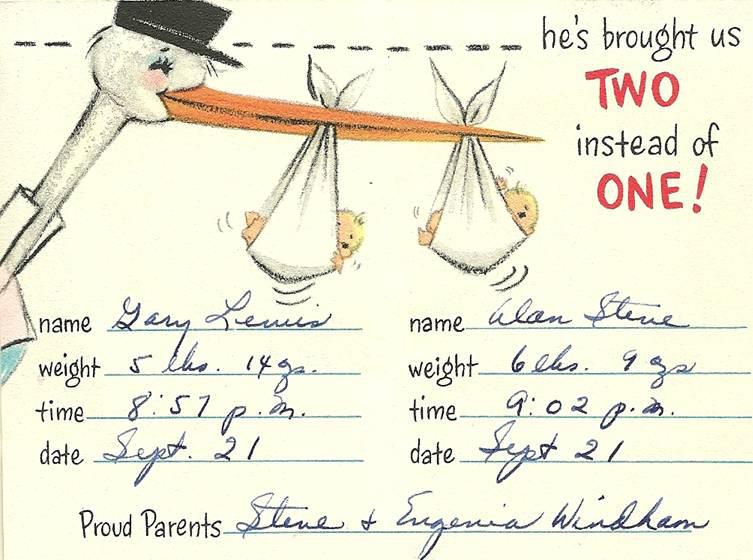 he's brought us
TWO
instead of
ONE!
name Gary Lewis
weight 5 lbs. 14 ozs.
time 8:57 p.m.
date Sept. 21
name Alan Steve
weight 6 lbs. 9 ozs
time 9:02 p.m.
date Sept 21
Proud Parents Steve & Eugenia Windham